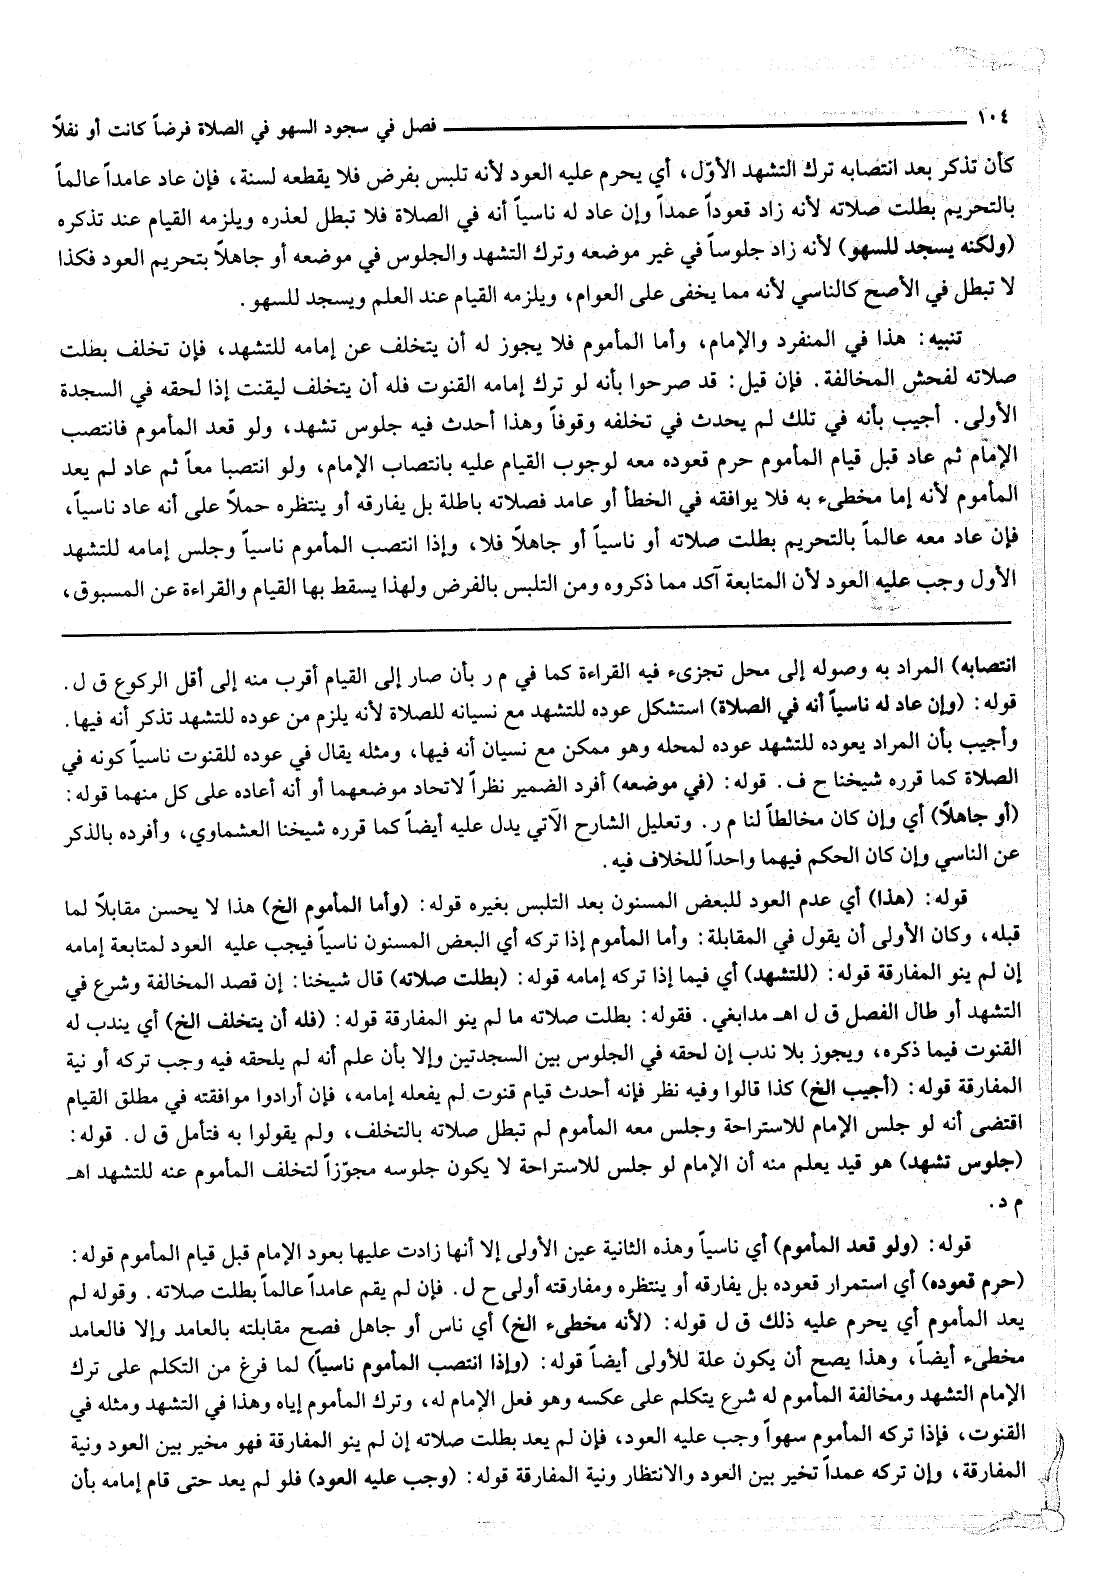 ١٠٤ ـــــ فصل في سجود السهو في الصلاة فرضاً كانت أو نفلاً
كأن تذكر بعد انتصابه ترك التشهد الأوّل، أي يحرم عليه العود لأنه تلبس بفرض فلا يقطعه لسنة، فإن عاد عامداً عالماً
بالتحريم بطلت صلاته لأنه زاد قعوداً عمداً وإن عاد له ناسياً أنه في الصلاة فلا تبطل لعذره ويلزمه القيام عند تذكره
(ولكنه يسجد للسهو) لأنه زاد جلوساً في غير موضعه وترك التشهد والجلوس في موضعه أو جاهلاً بتحريم العود فكذا
لا تبطل في الأصح كالناسي لأنه مما يخفى على العوام، ويلزمه القيام عند العلم ويسجد للسهو.
تنبيه: هذا في المنفرد والإمام، وأما المأموم فلا يجوز له أن يتخلف عن إمامه للتشهد، فإن تخلف بطلت
صلاته لفحش المخالفة. فإن قيل: قد صرحوا بأنه لو ترك إمامه القنوت فله أن يتخلف ليقنت إذا لحقه في السجدة
الأولى. أجيب بأنه في تلك لم يحدث في تخلفه وقوفاً وهذا أحدث فيه جلوس تشهد، ولو قعد المأموم فانتصب
الإمام ثم عاد قبل قيام المأموم حرم قعوده معه لوجوب القيام عليه بانتصاب الإمام، ولو انتصبا معاً ثم عاد لم يعد
المأموم لأنه إما مخطىء به فلا يوافقه في الخطأ أو عامد فصلاته باطلة بل يفارقه أو ينتظره حملاً على أنه عاد ناسياً،
فإن عاد معه عالماً بالتحريم بطلت صلاته أو ناسياً أو جاهلاً فلا، وإذا انتصب المأموم ناسياً وجلس إمامه للتشهد
الأول وجب عليه العود لأن المتابعة آكد مما ذكروه ومن التلبس بالفرض ولهذا يسقط بها القيام والقراءة عن المسبوق،
انتصابه) المراد به وصوله إلى محل تجزىء فيه القراءة كما في م ر بأن صار إلى القيام أقرب منه إلى أقل الركوع ق ل.
قوله: (وإن عاد له ناسياً أنه في الصلاة) استشكل عوده للتشهد مع نسيانه للصلاة لأنه يلزم من عوده للتشهد تذكر أنه فيها.
وأجيب بأن المراد بعوده للتشهد عوده لمحله وهو ممكن مع نسيان أنه فيها، ومثله يقال في عوده للقنوت ناسياً كونه في
الصلاة كما قرره شيخنا ح ف. قوله: (في موضعه) أفرد الضمير نظراً لاتحاد موضعهما أو أنه أعاده على كل منهما قوله:
(أو جاهلاً) أي وإن كان مخالطاً لنا م ر. وتعليل الشارح الآتي يدل عليه أيضاً كما قرره شيخنا العشماوي، وأفرده بالذكر
عن الناسي وإن كان الحكم فيهما واحداً للخلاف فيه.
قوله: (هذا) أي عدم العود للبعض المسنون بعد التلبس بغيره قوله: (وأما المأموم الخ) هذا لا يحسن مقابلاً لما
قبله، وكان الأولى أن يقول في المقابلة: وأما المأموم إذا تركه أي البعض المسنون ناسياً فيجب عليه العود لمتابعة إمامه
إن لم ينو المفارقة قوله: (للتشهد) أي فيما إذا تركه إمامه قوله: (بطلت صلاته) قال شيخنا: إن قصد المخالفة وشرع في
التشهد أو طال الفصل ق ل اهـ مدابغي. فقوله: بطلت صلاته ما لم ينو المفارقة قوله: (فله أن يتخلف الخ) أي يندب له
القنوت فيما ذكره، ويجوز بلا ندب إن لحقه في الجلوس بين السجدتين وإلا بأن علم أنه لم يلحقه فيه وجب تركه أو نية
المفارقة قوله: (أجيب الخ) كذا قالوا وفيه نظر فإنه أحدث قيام قنوت لم يفعله إمامه، فإن أرادوا موافقته في مطلق القيام
اقتضى أنه لو جلس الإمام للاستراحة وجلس معه المأموم لم تبطل صلاته بالتخلف، ولم يقولوا به فتأمل ق ل. قوله:
(جلوس تشهد) هو قيد يعلم منه أن الإمام لو جلس للاستراحة لا يكون جلوسه مجوّزاً لتخلف المأموم عنه للتشهد اهـ
م د.
قوله: (ولو قعد المأموم) أي ناسياً وهذه الثانية عين الأولى إلا أنها زادت عليها بعود الإمام قبل قيام المأموم قوله:
(حرم قعوده) أي استمرار قعوده بل يفارقه أو ينتظره ومفارقته أولى ح ل. فإن لم يقم عامداً عالماً بطلت صلاته. وقوله لم
يعد المأموم أي يحرم عليه ذلك ق ل قوله: (لأنه مخطىء الخ) أي ناس أو جاهل فصح مقابلته بالعامد وإلا فالعامد
مخطىء أيضاً، وهذا يصح أن يكون علة للأولى أيضاً قوله: (وإذا انتصب المأموم ناسياً) لما فرغ من التكلم على ترك
الإمام التشهد ومخالفة المأموم له شرع يتكلم على عكسه وهو فعل الإمام له، وترك المأموم إياه وهذا في التشهد ومثله في
القنوت، فإذا تركه المأموم سهواً وجب عليه العود، فإن لم يعد بطلت صلاته إن لم ينو المفارقة فهو مخير بين العود ونية
المفارقة، وإن تركه عمداً تخير بين العود والانتظار ونية المفارقة قوله: (وجب عليه العود) فلو لم يعد حتى قام إمامه بأن